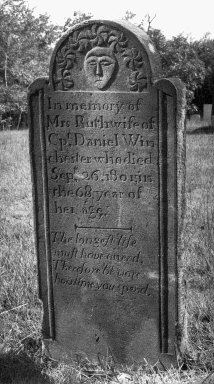 In memory of
Mrs Ruth wife of
Cpt. Daniel Win
chester who died
Sept 26, 1801 in
the 68 year of
her age.
The longest life
must have an end,
Therefore be ware
how time you spend.